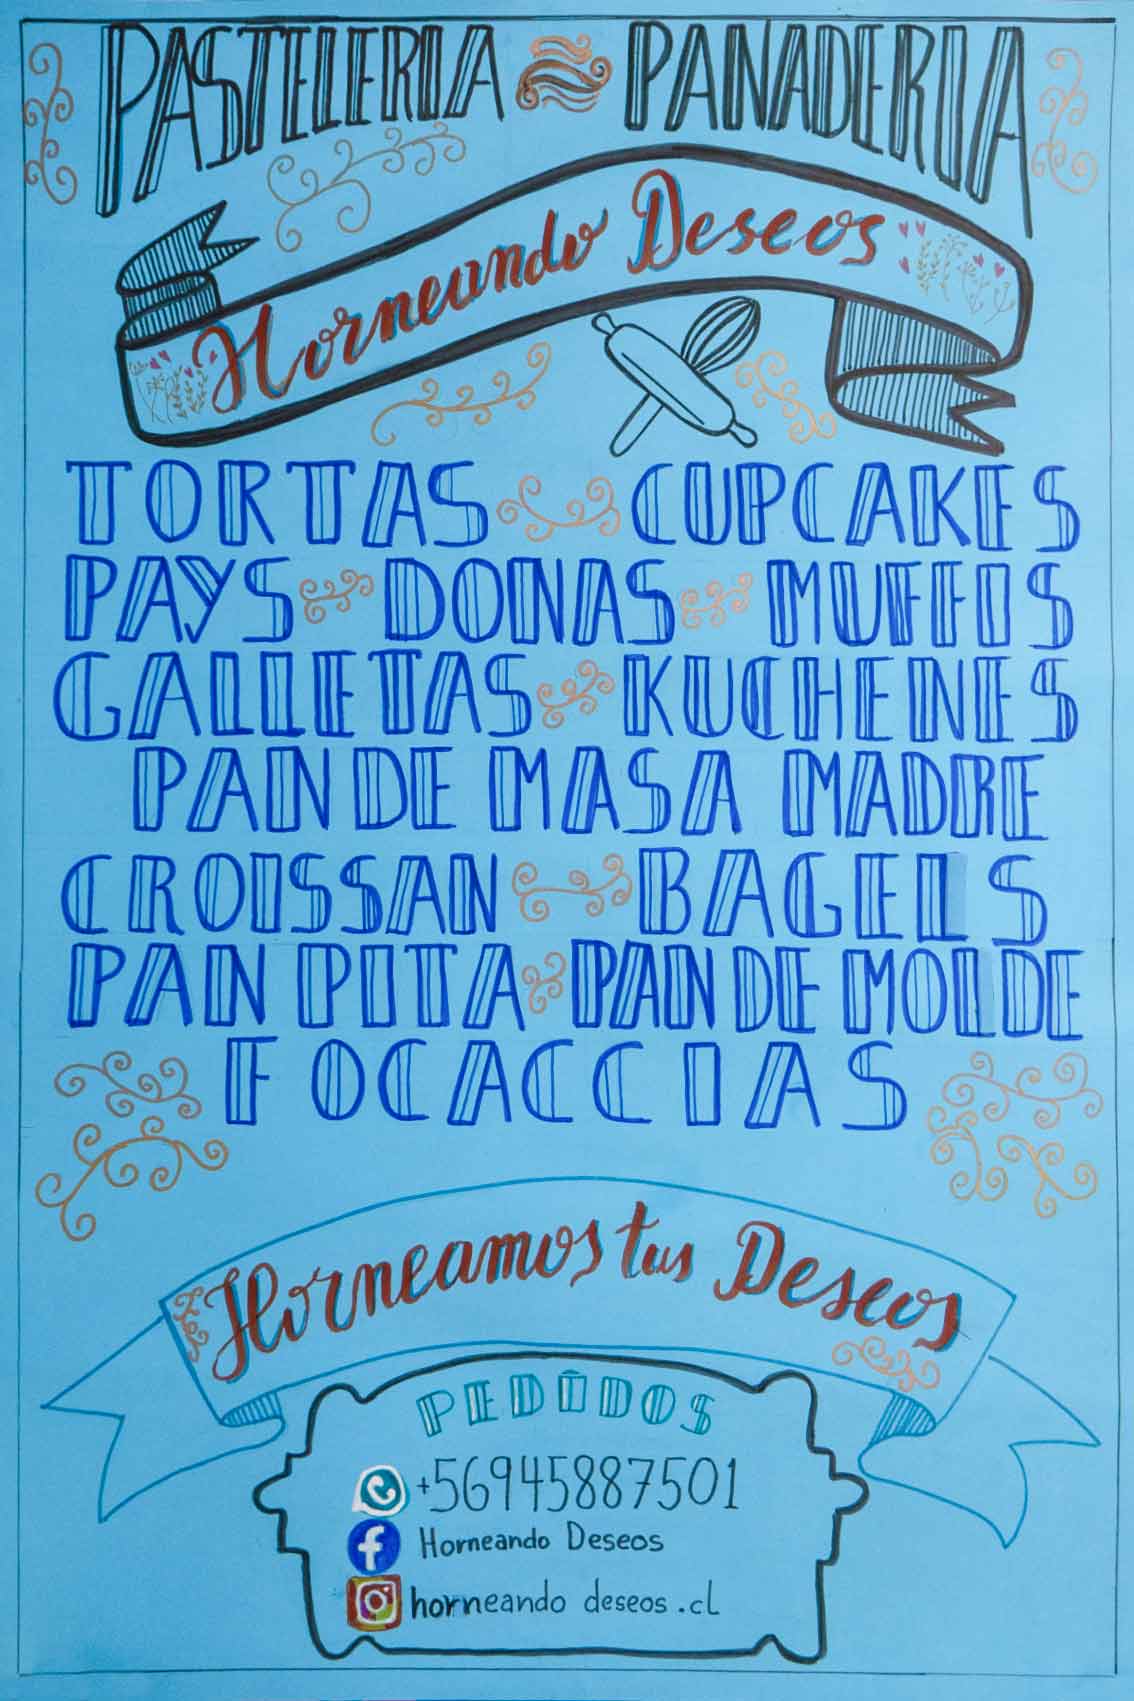 PASTELERIA PANADERIA
Horneando Deseos
TORTAS CUPCAKES
PAYS DONAS MUFFIS
GALLETAS KUCHENES
PAN DE MASA MADRE
CROISSAN BAGELS
PAN PITA PAN DE MOLDE
FOCACCIAS
Horneamos tus Deseos
PEDIDOS
+56945887501
Horneando Deseos
horneando deseos.cl